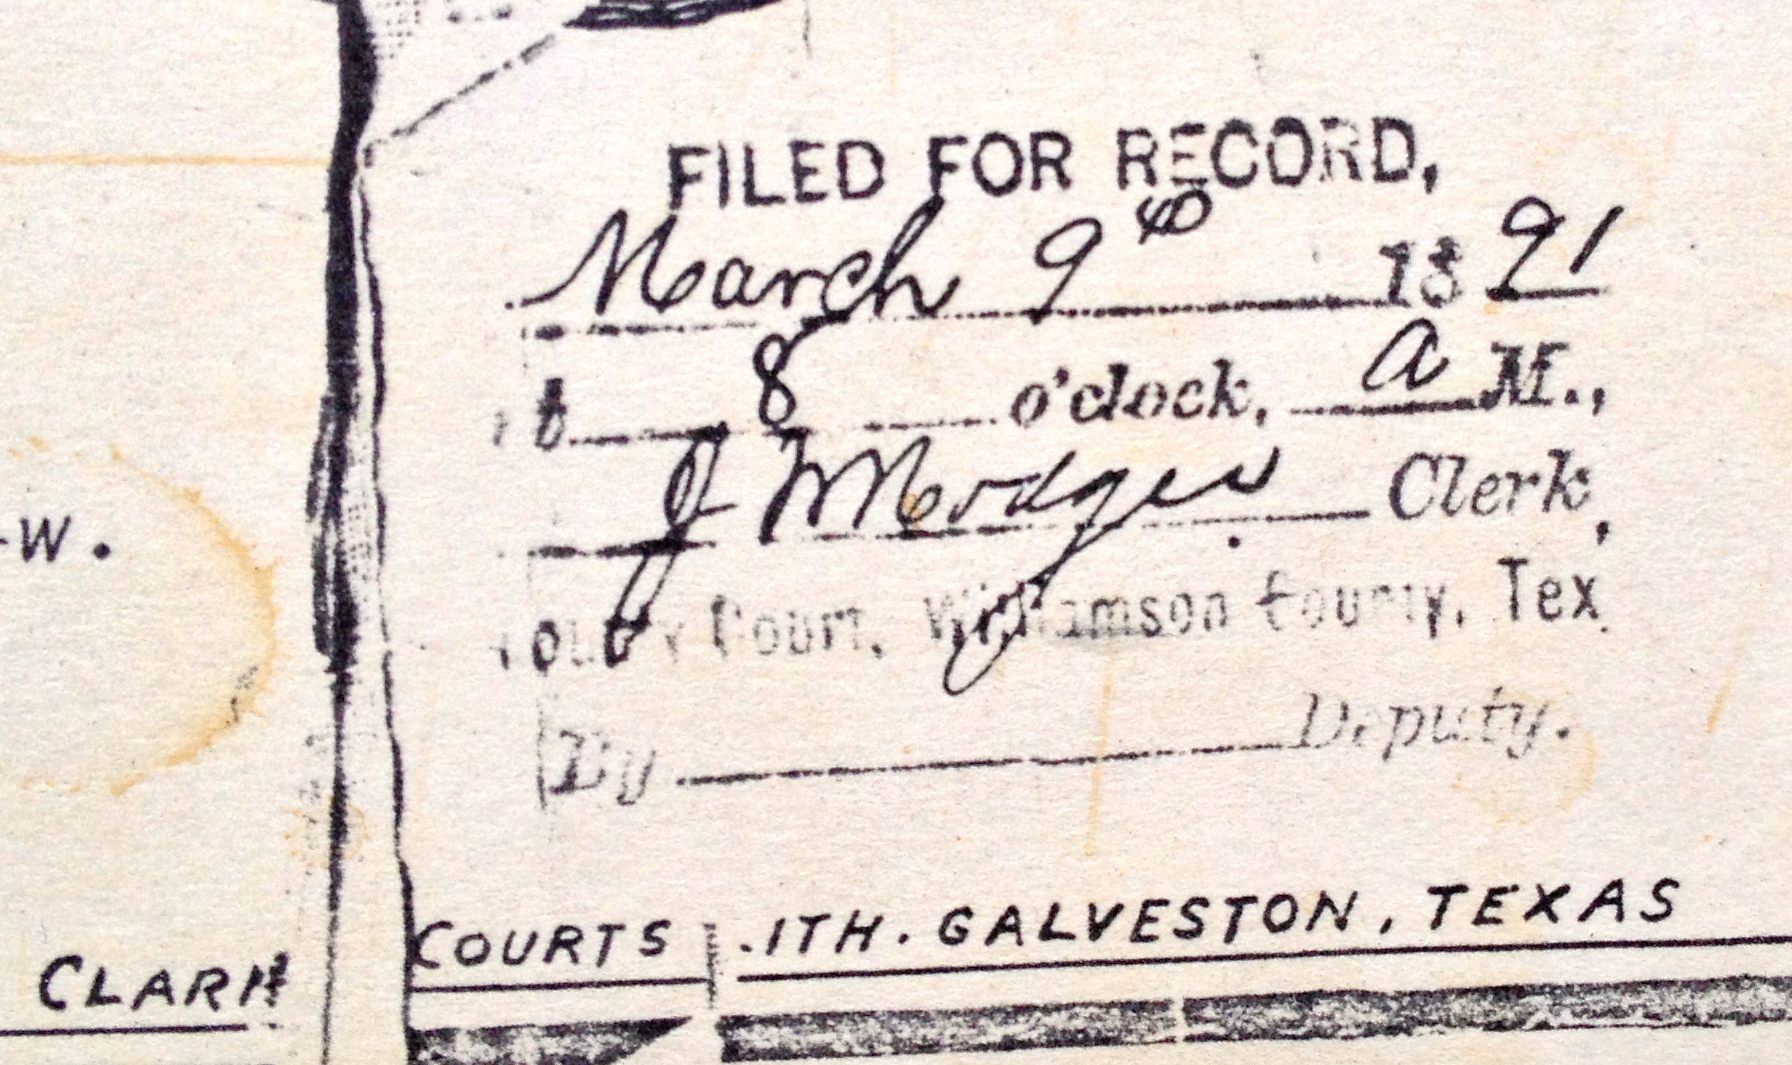 FILED FOR RECORD,
March 9th 1891
at 8 o'clock, a M.,
J W Hodges Clerk,
County Court, Williamson County, Tex.
By Deputy.
-W.
COURTS .ITH. GALVESTON, TEXAS
CLARK